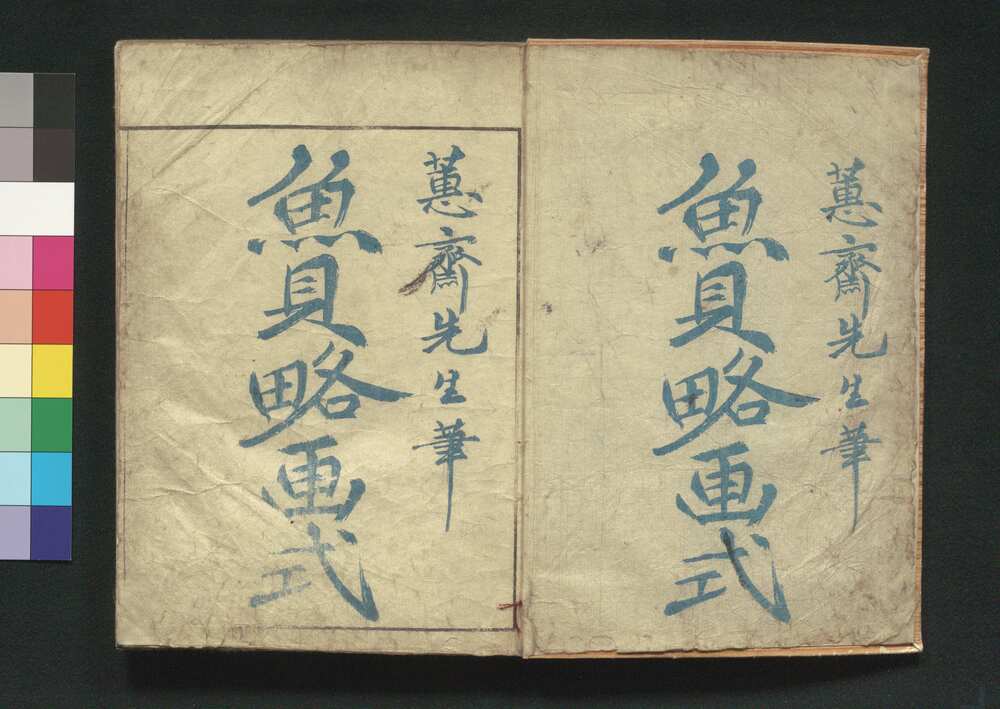 蕙齋先生筆
魚貝略画式
蕙齋先生筆
魚貝略画式